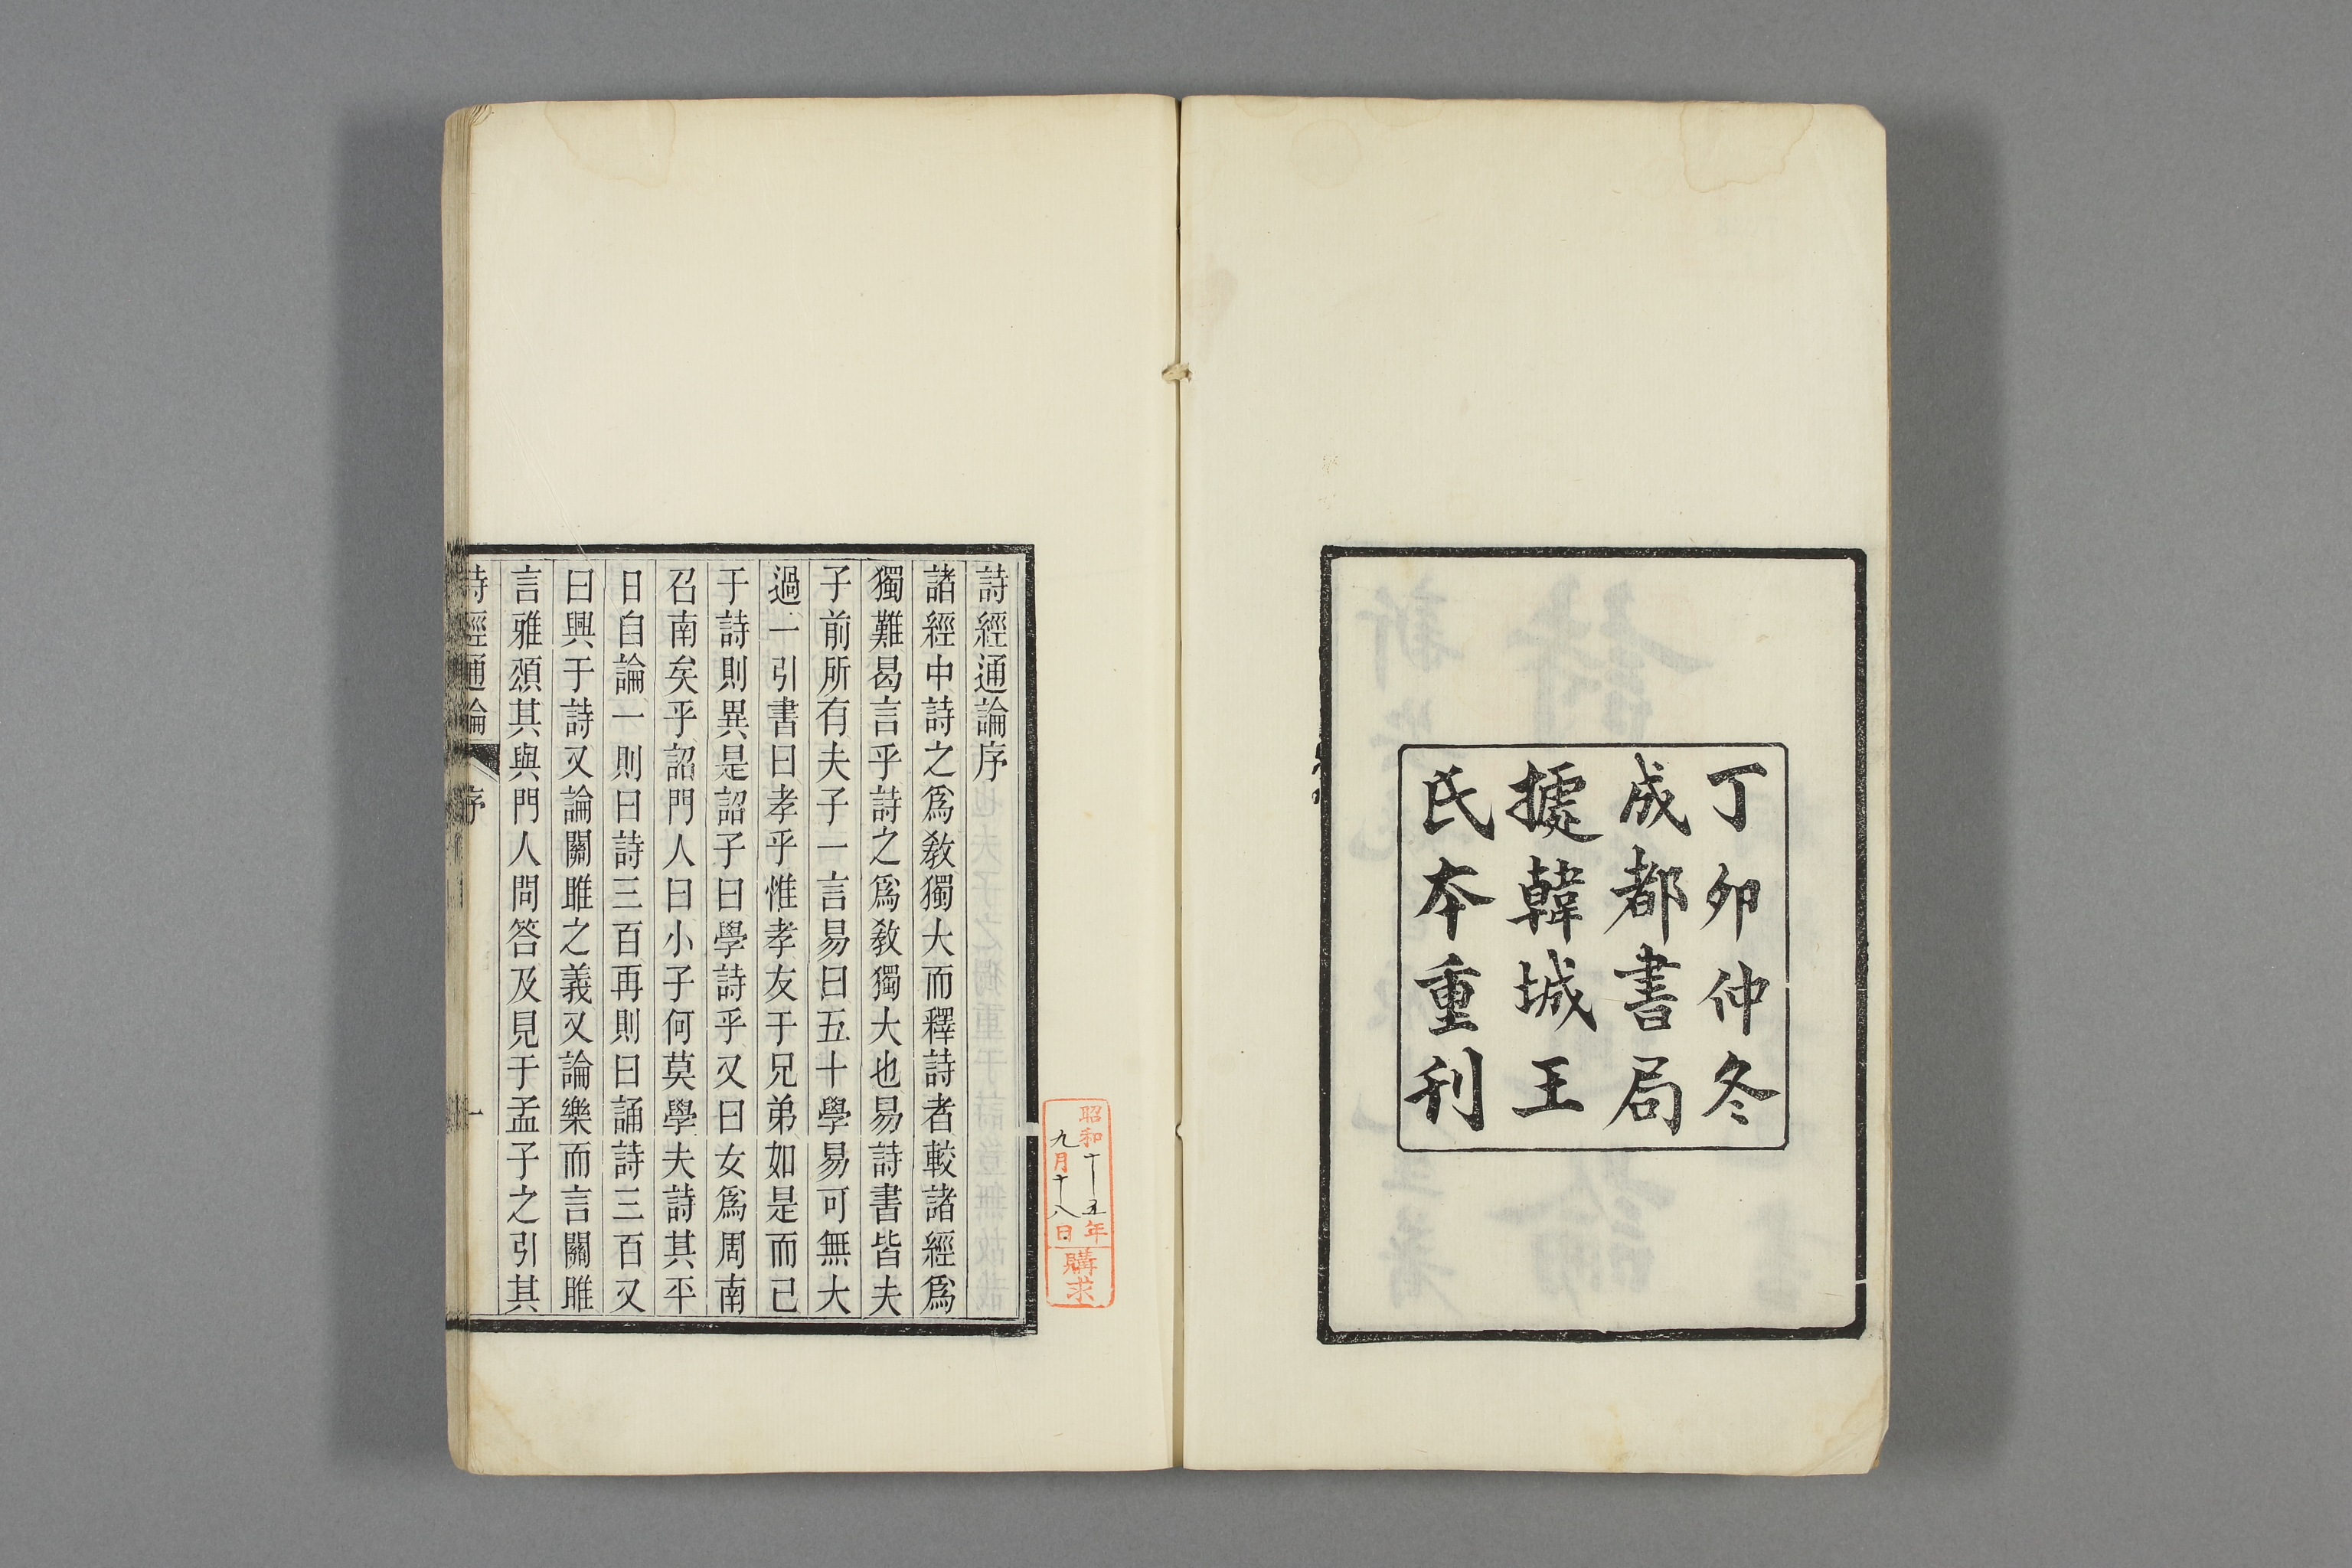 丁卯仲冬
成都書局
據韓城王
氏本重刊
昭和十五年
九月十八日
購求
詩經通論序
諸經中詩之爲敎獨大而釋詩者較諸經爲
獨難曷言乎詩之爲敎獨大也易詩書皆夫
子前所有夫子一言易曰五十學易可無大
過一引書曰孝乎惟孝友于兄弟如是而已
于詩則異是詔子曰學詩乎又曰女爲周南
召南矣乎詔門人曰小子何莫學夫詩其平
日自論一則曰詩三百再則曰誦詩三百又
曰興于詩又論關雎之義又論樂而言關雎
言雅頌其與門人問答及見于孟子之引其
詩經通論
序
一